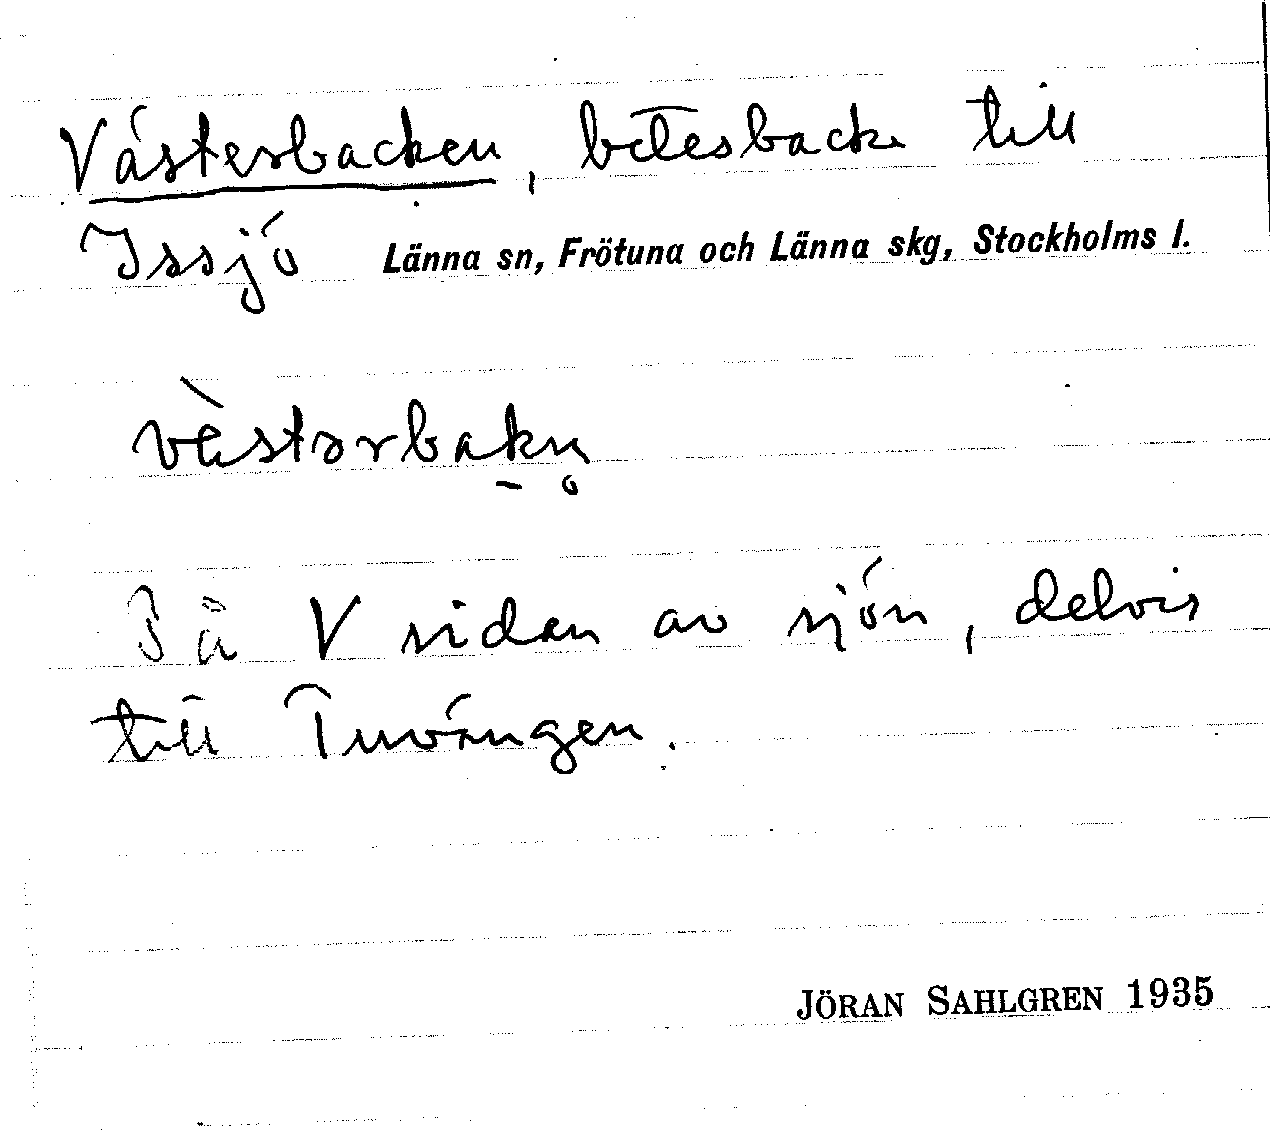 Västerbacken, betesbacke till
Issjö Länna sn, Frötuna och Länna skg, Stockholms l.
vèstərbakn̥
På V sidan av sjön, delvis
till Tuvängen.
JÖRAN SAHLGREN 1935